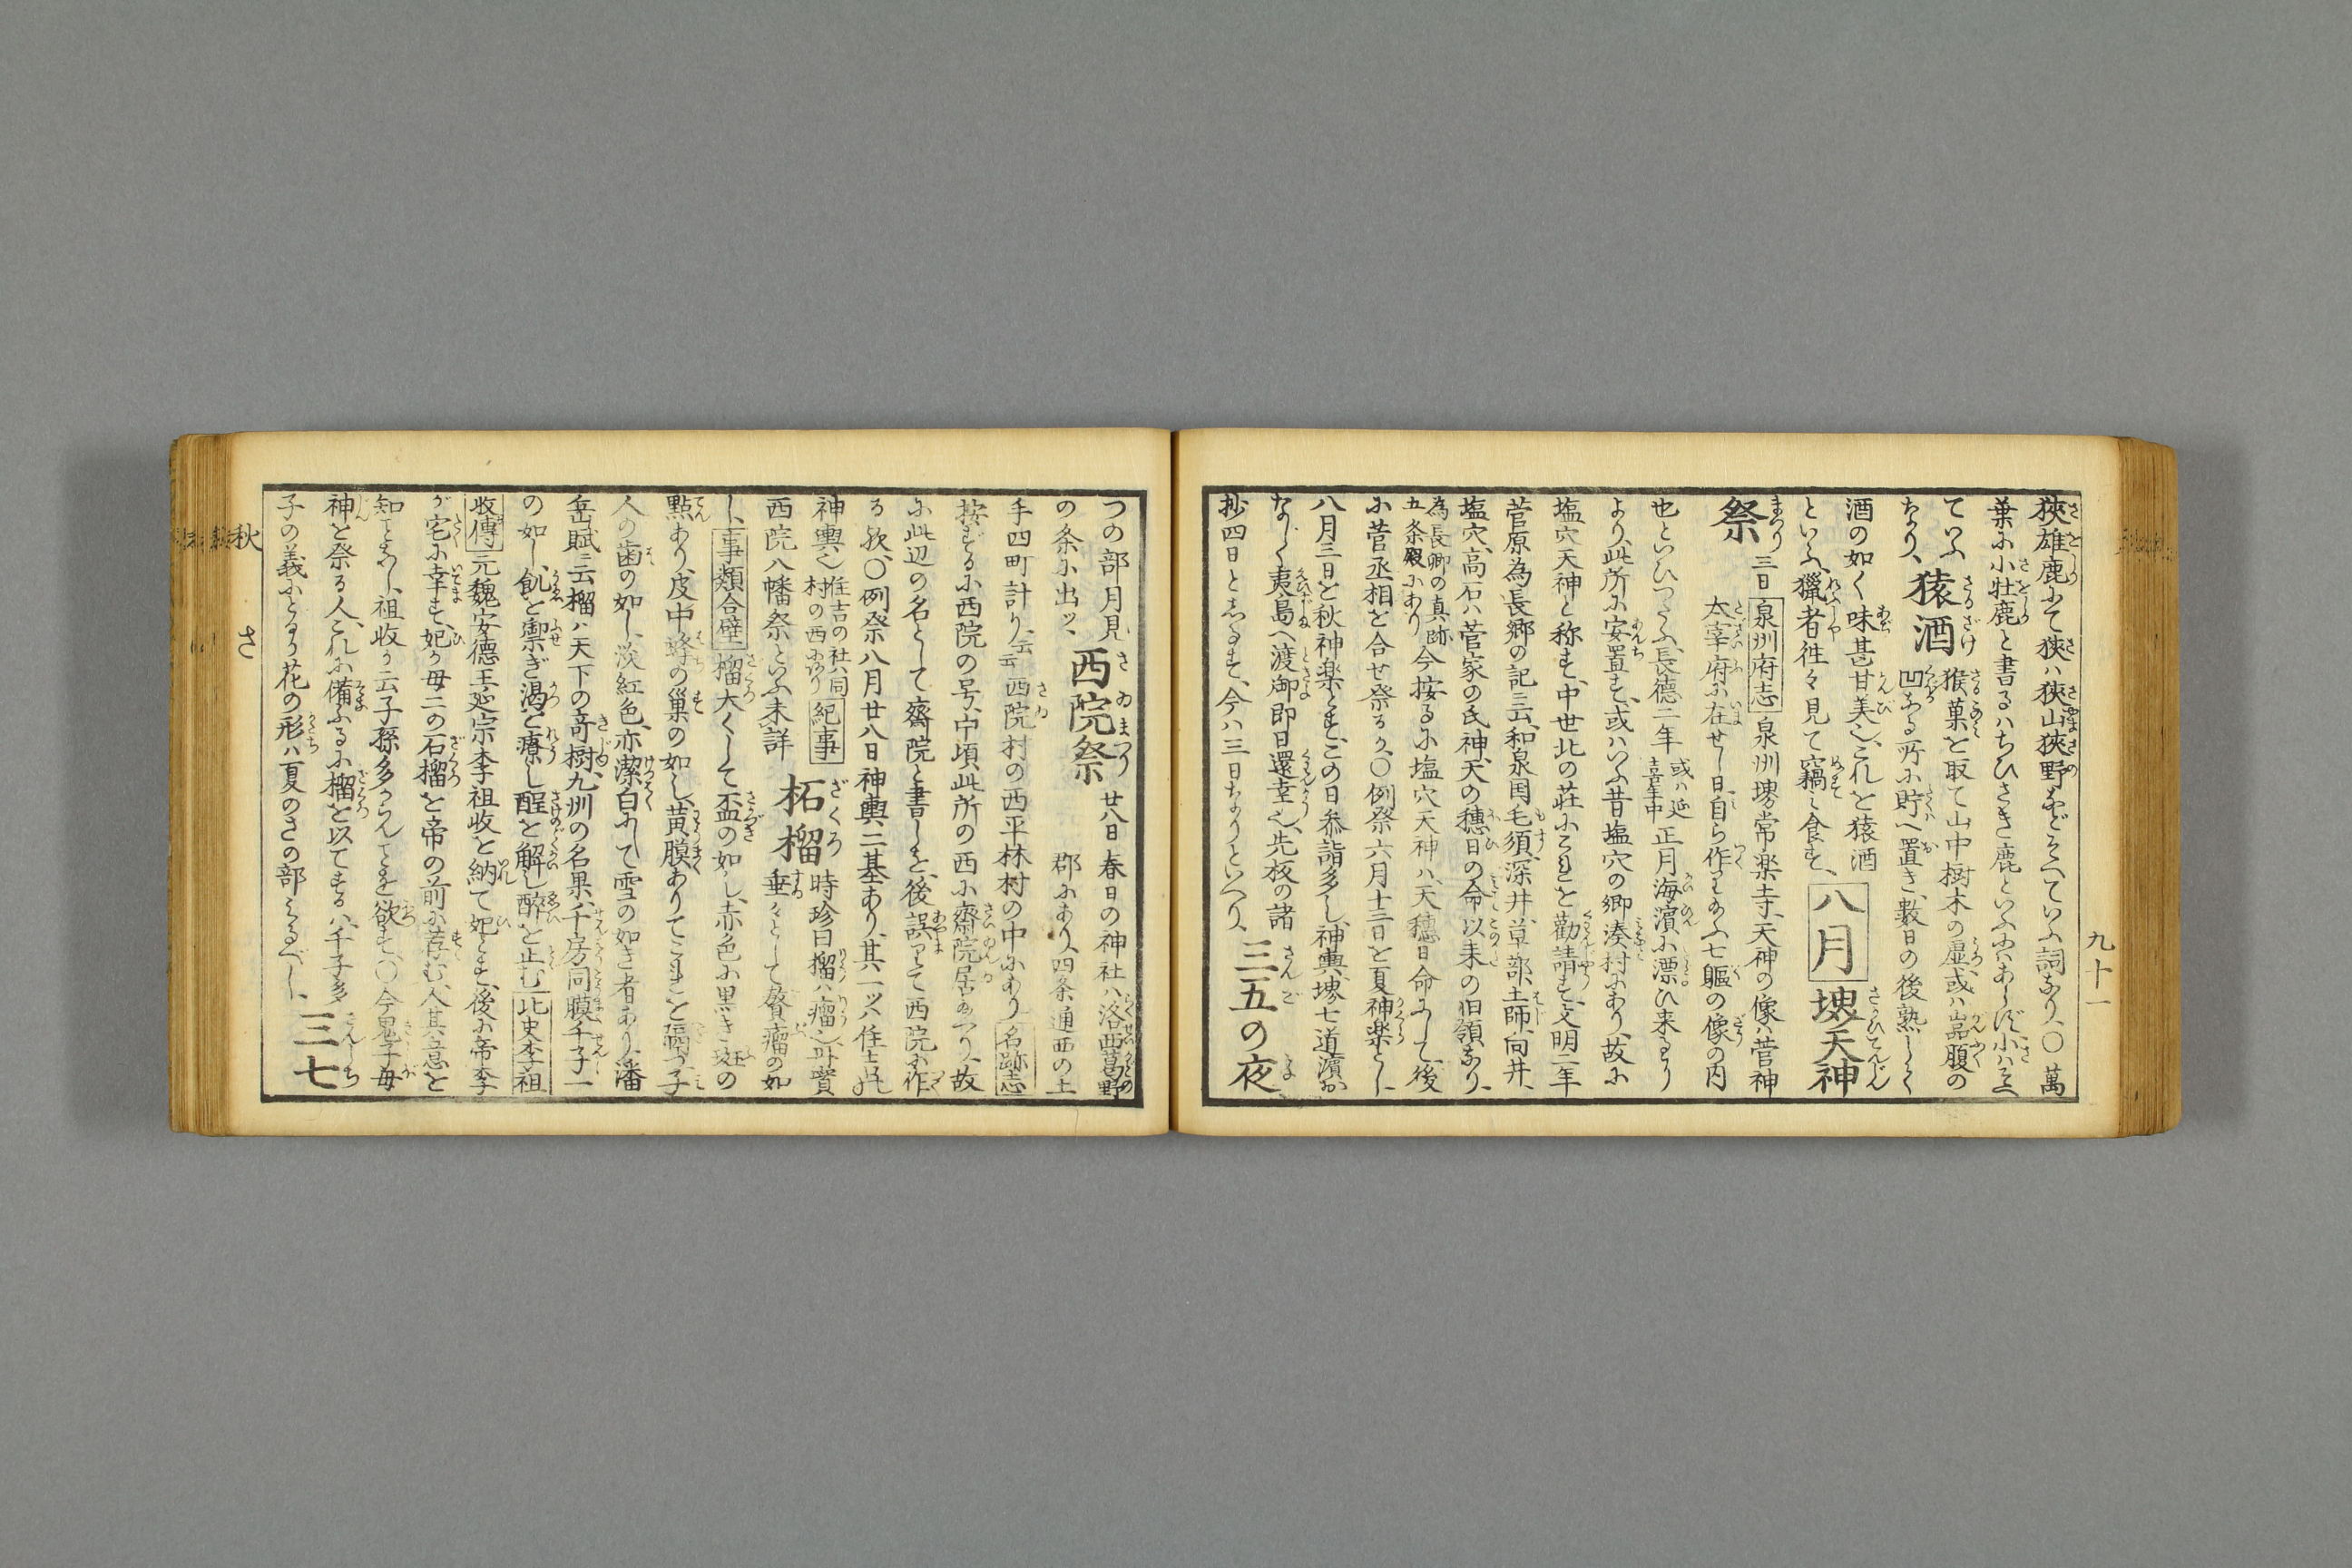 九十一
狹雄鹿にて狹ハ狹山狹野などそへていふ詞なり、○萬
葉に小牡鹿と書るハちひさき鹿といふにハあらず、小ハそへ
ていふ
猿酒
猴菓を取て山中樹木の虚、或ハ岩腹の
なり、
凹なる所に貯へ置き、数日の後熟して
酒の如く味甚甘美也、これを猿酒
といふ、獵者徃々見て竊に食す、
八月
堺天神
祭
三日
泉州府志
泉州堺常楽寺、天神の像ハ菅神
太宰府に在せし日、自ら作り給ふ七軀の像の内
也といひつたふ、長徳二年
或ハ延
喜年中
正月海濱に漂ひ来るに
より、此所に安置す、或ハいふ昔塩穴の郷湊村にあり、故に
塩穴天神と称す、中世此の荘にこれを勸請す、文明二年
菅原為長郷の記ニ云、和泉国毛須、深井、草部、土師、向井、
塩穴、高石ハ菅家の氏神、天の穗日の命以来の旧領なり、
為長卿の真跡
五条殿にあり
今按るに塩穴天神ハ、天穗日命にして、後
に菅丞相を合せ祭るか、○例祭六月十三日を夏神楽とし
八月三日を秋神楽とす、この日参詣多し、神輿堺七道濱お
なじく夷島へ渡御即日還幸也、先板の諸
抄四日と志るす、今ハ三日なりといへり、
三五の夜
つの部月見
の条に出ッ、
西院祭
廿八日春日の神社ハ洛西葛野
郡にあり、四条通西の土
手四町計り、云云西院村の西平林村の中にあり
名跡志
按ずるに西院の号、中頃此所の西に齋院居給へり、故
に此辺の名として齋院と書しを、後誤りて西院に作
る欤、○例祭八月廿八日神輿二基あり、其一ッハ住吉の
神輿也
住吉の社ハ同
村の西にあり
紀事
西院八幡祭といふ未詳
柘榴
時珍曰榴ハ瘤也丹實
垂々として贅瘤の如
し、
事類合璧
榴大くして盃の如し、赤色に黒き斑の
點あり、皮中蜂の巣の如し、黄膜ありてこれを隔つ、子
人の歯の如し、淡紅色、亦潔白にして雪の如き者あり、潘
岳賦ニ云榴ハ天下の奇樹、九州の名果、千房同膜千子一
の如し、飢を禦ぎ渇を療し酲を解し醉を止む
北史李祖
收傳
元魏安德王延宗李祖收を納て妃とす、後に帝李
が宅に幸す、妃か母二の石榴を帝の前に荐む、人其意を
知ことなし、祖收か云子孫多からんことを欲す、○今鬼子母
神を祭る人、これに備ふるに榴を以てするハ、千子多
子の義によるか花の形ハ夏のさの部にみるべし、
三七
秋
さ